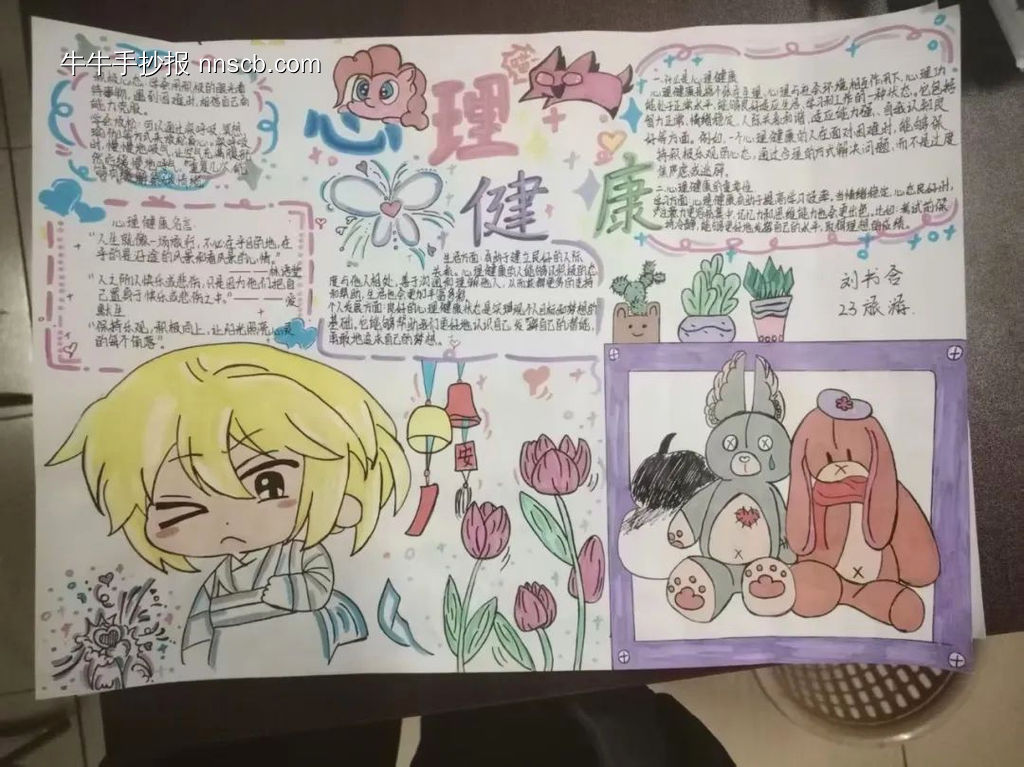 牛牛手抄报 nnscb.com
心理
健康
能力克服。
心理健康名言:
“人生就像一场旅行,不必在乎目的地,在
乎的是沿途的风景和看风景的心情。”
——林语堂
“人之所以快乐或悲伤,只是因为他们把自
己置身于快乐或悲伤之中。”——爱
默生
“保持乐观,积极向上,让阳光照亮心灵
的每个角落”。
生活方面:有助于建立良好的人际
关系。心理健康的人能够以积极的态
度与他人相处,善于沟通和理解他人,从而获得更多的支持
和帮助,生活也会更加丰富多彩
个人发展方面:良好的心理健康状态是实现个人目标和梦想的
基础,它能够帮助我们更好地认识自己,发挥自己的潜能,
勇敢地追求自己的梦想。
一、什么是心理健康
心理健康是指个体在生理、心理与社会环境相互作用下,心理功
能处于正常水平,能够良好适应生活、学习和工作的一种状态。它包括
智力正常、情绪稳定、人际关系和谐、适应能力强、自我认知良
好等方面。例如,一个心理健康的人在面对困难时,能够保
持积极乐观的心态,通过合理的方式解决问题,而不是过度
焦虑或逃避。
二、心理健康的重要性
学习方面:心理健康有助于提高学习效率。当情绪稳定、心态良好时,
注意力更容易集中,记忆力和思维能力也会更出色。比如,考试前保
持冷静,能够更好地发挥自己的水平,取得理想的成绩。
刘书含
23旅游.
安